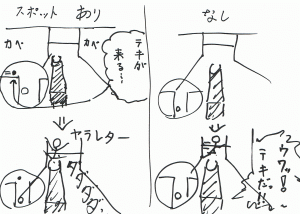 スポット あり
カベ
カベ
テキが
来る…
ヤラレター
ダダダダッ
なし
ウワッ!!
テキだッ!!